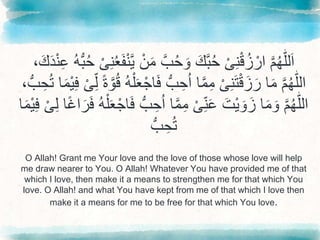 اَللّٰهُمَّ ارْزُقْنِيْ حُبَّكَ وَحُبَّ مَنْ يَّنْفَعُنِيْ حُبُّهُ عِنْدَكَ،
اَللّٰهُمَّ مَا رَزَقْتَنِيْ مِمَّا أُحِبُّ فَاجْعَلْهُ قُوَّةً لِّيْ فِيْمَا تُحِبُّ،
اَللّٰهُمَّ وَمَا زَوَيْتَ عَنِّيْ مِمَّا أُحِبُّ فَاجْعَلْهُ فَرَاغًا لِيْ فِيْمَا
تُحِبُّ
O Allah! Grant me Your love and the love of those whose love will help
me draw nearer to You. O Allah! Whatever You have provided me of that
which I love, then make it a means to strengthen me for that which You
love. O Allah! and what You have kept from me of that which I love then
make it a means for me to be free for that which You love.